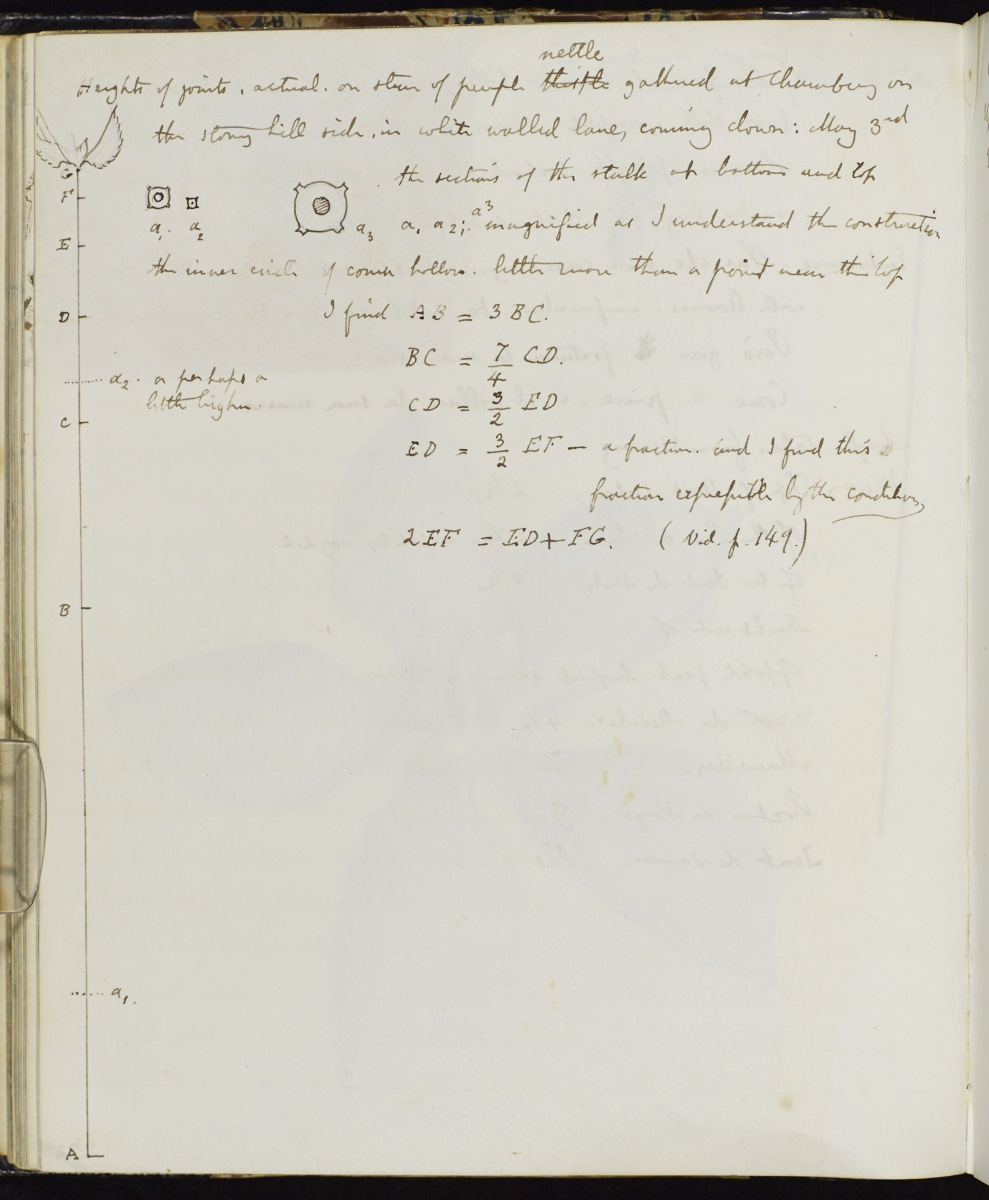 nettle
Heights of joints, actual. on stem of purple thistle gathered at Chambery on
the stony hill side, in white walled lane, coming down: May 3rd
the sections of the stalk at bottom and top
a1. a2 a3 a, a2; a3 magnified as I understand the construction
the inner circle of course hollow. little more than a point near the top
I find AB = 3 BC.
BC = 7/4 CD.
CD = 3/2 ED
ED = 3/2 EF – a fraction. and I find this
fraction expressible by the condition,
2EF = ED + FG. (Vid. p. 149.)
G
F
E
D
a2. or perhaps a
little higher.
C
B
a1.
A